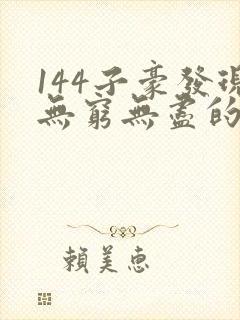 144子豪發現
無窮無盡的
賴美惠